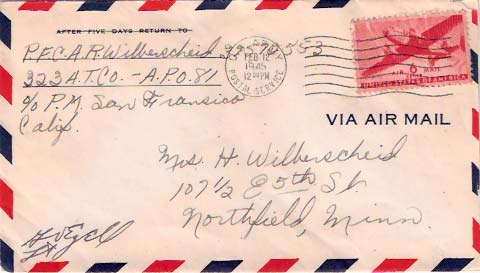 AFTER FIVE DAYS RETURN TO
P.F.C. A.R. Wilberscheid
323 A.T. Co. - A.P.O. 81
c/o P.M. San Fransisco
Calif.
U.S. ARMY
FEB 12
1945
POSTAL SERVICE
AIR 6 MAIL
CENTS
UNITED STATES OF AMERICA
VIA AIR MAIL
Mrs. H. Wilberscheid
107 1/2 E 5th St.
Northfield, Minn.